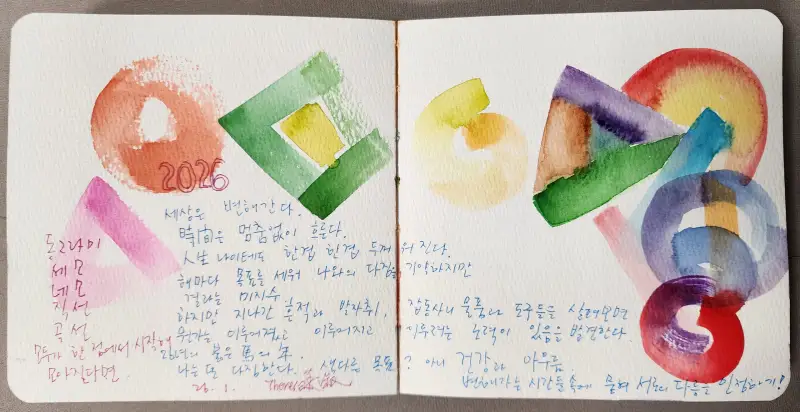 2026
동그라미
세모
네모
직선
곡선
모두가 한 점에서 시작해
모아진다면
세상은 변해간다.
時間은 멈춤없이 흐른다.
人生 나이테도 한겹 한겹 두꺼워진다.
해마다 목표를 세워 나와의 다짐을 기억하지만
결과는 미지수
하지만 지나간 흔적과 발자취,
뭔가는 이루어졌고 이루어지고
붉은 馬의 年
나는 또 다짐한다. 색다른 목표
26. 1.
잡동사니 물품과 도구들을 살펴보면
이루려는 노력이 있음을 발견한다.
? 아니 건강과 아우름
변해가는 시간들 속에 묻혀 서로의 다름을 인정하기!